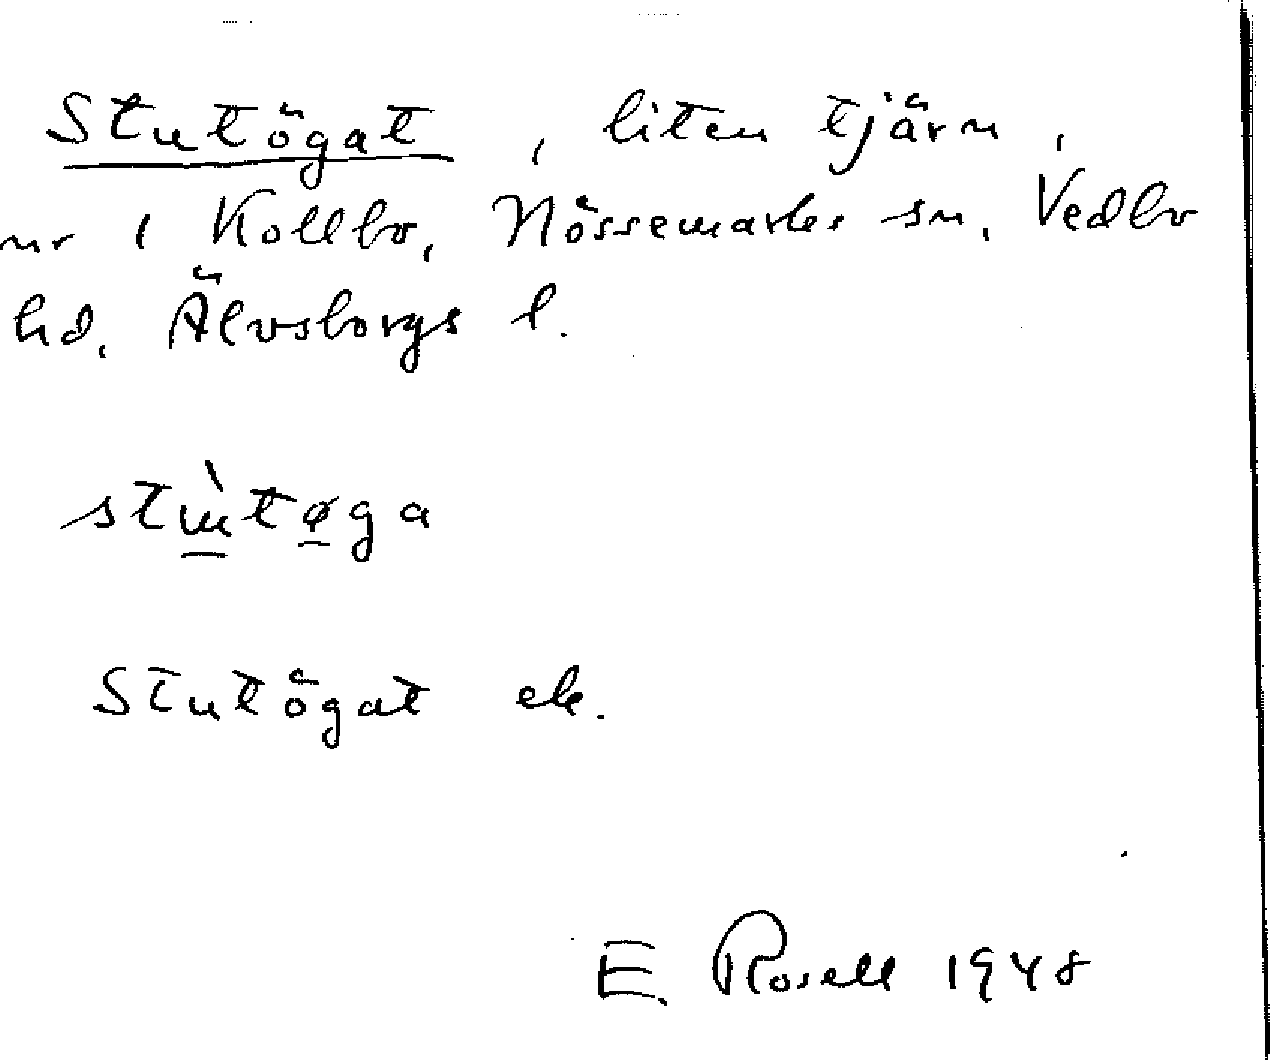 Stutögat, liten tjärn,
nr 1 Kollbo, Nössemarks sn, Vedbo
hd, Älvsborgs l.
Stutögat ek.
E. Rosell 1948